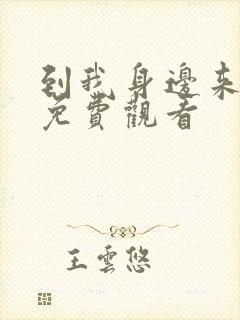 到我身邊來
免費觀看
王雲悠